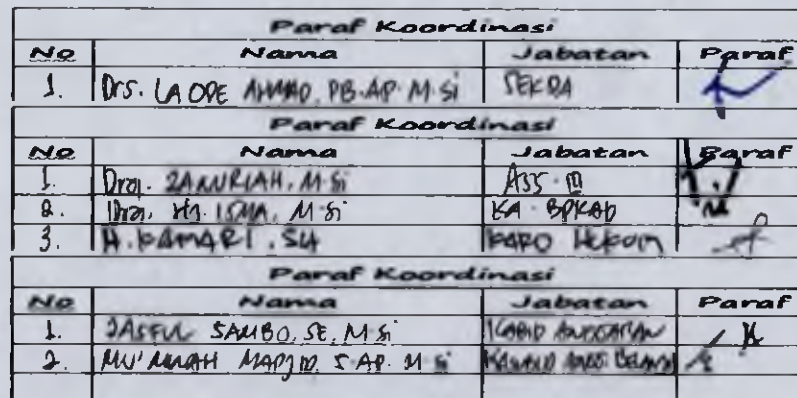 Paraf Koordinasi
No Nama Jabatan Paraf
1. Drs. LA ODE AHMAD, PB.AP. M.Si SEKDA
Paraf Koordinasi
No Nama Jabatan Paraf
1. Dra. ZANURIAH, M.Si ASS. III
2. Dra. Hj. ISMA, M.Si KA. BPKAD
3. H. KAMARI, SH KARO HUKUM
Paraf Koordinasi
No Nama Jabatan Paraf
1. SAMBO, SE, M.Si KABID ANGGARAN
2. MAPJID, S.AP. M.Si